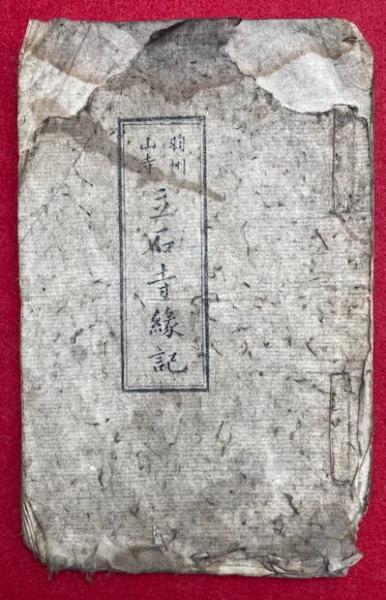 羽州
山寺
立石寺緣記